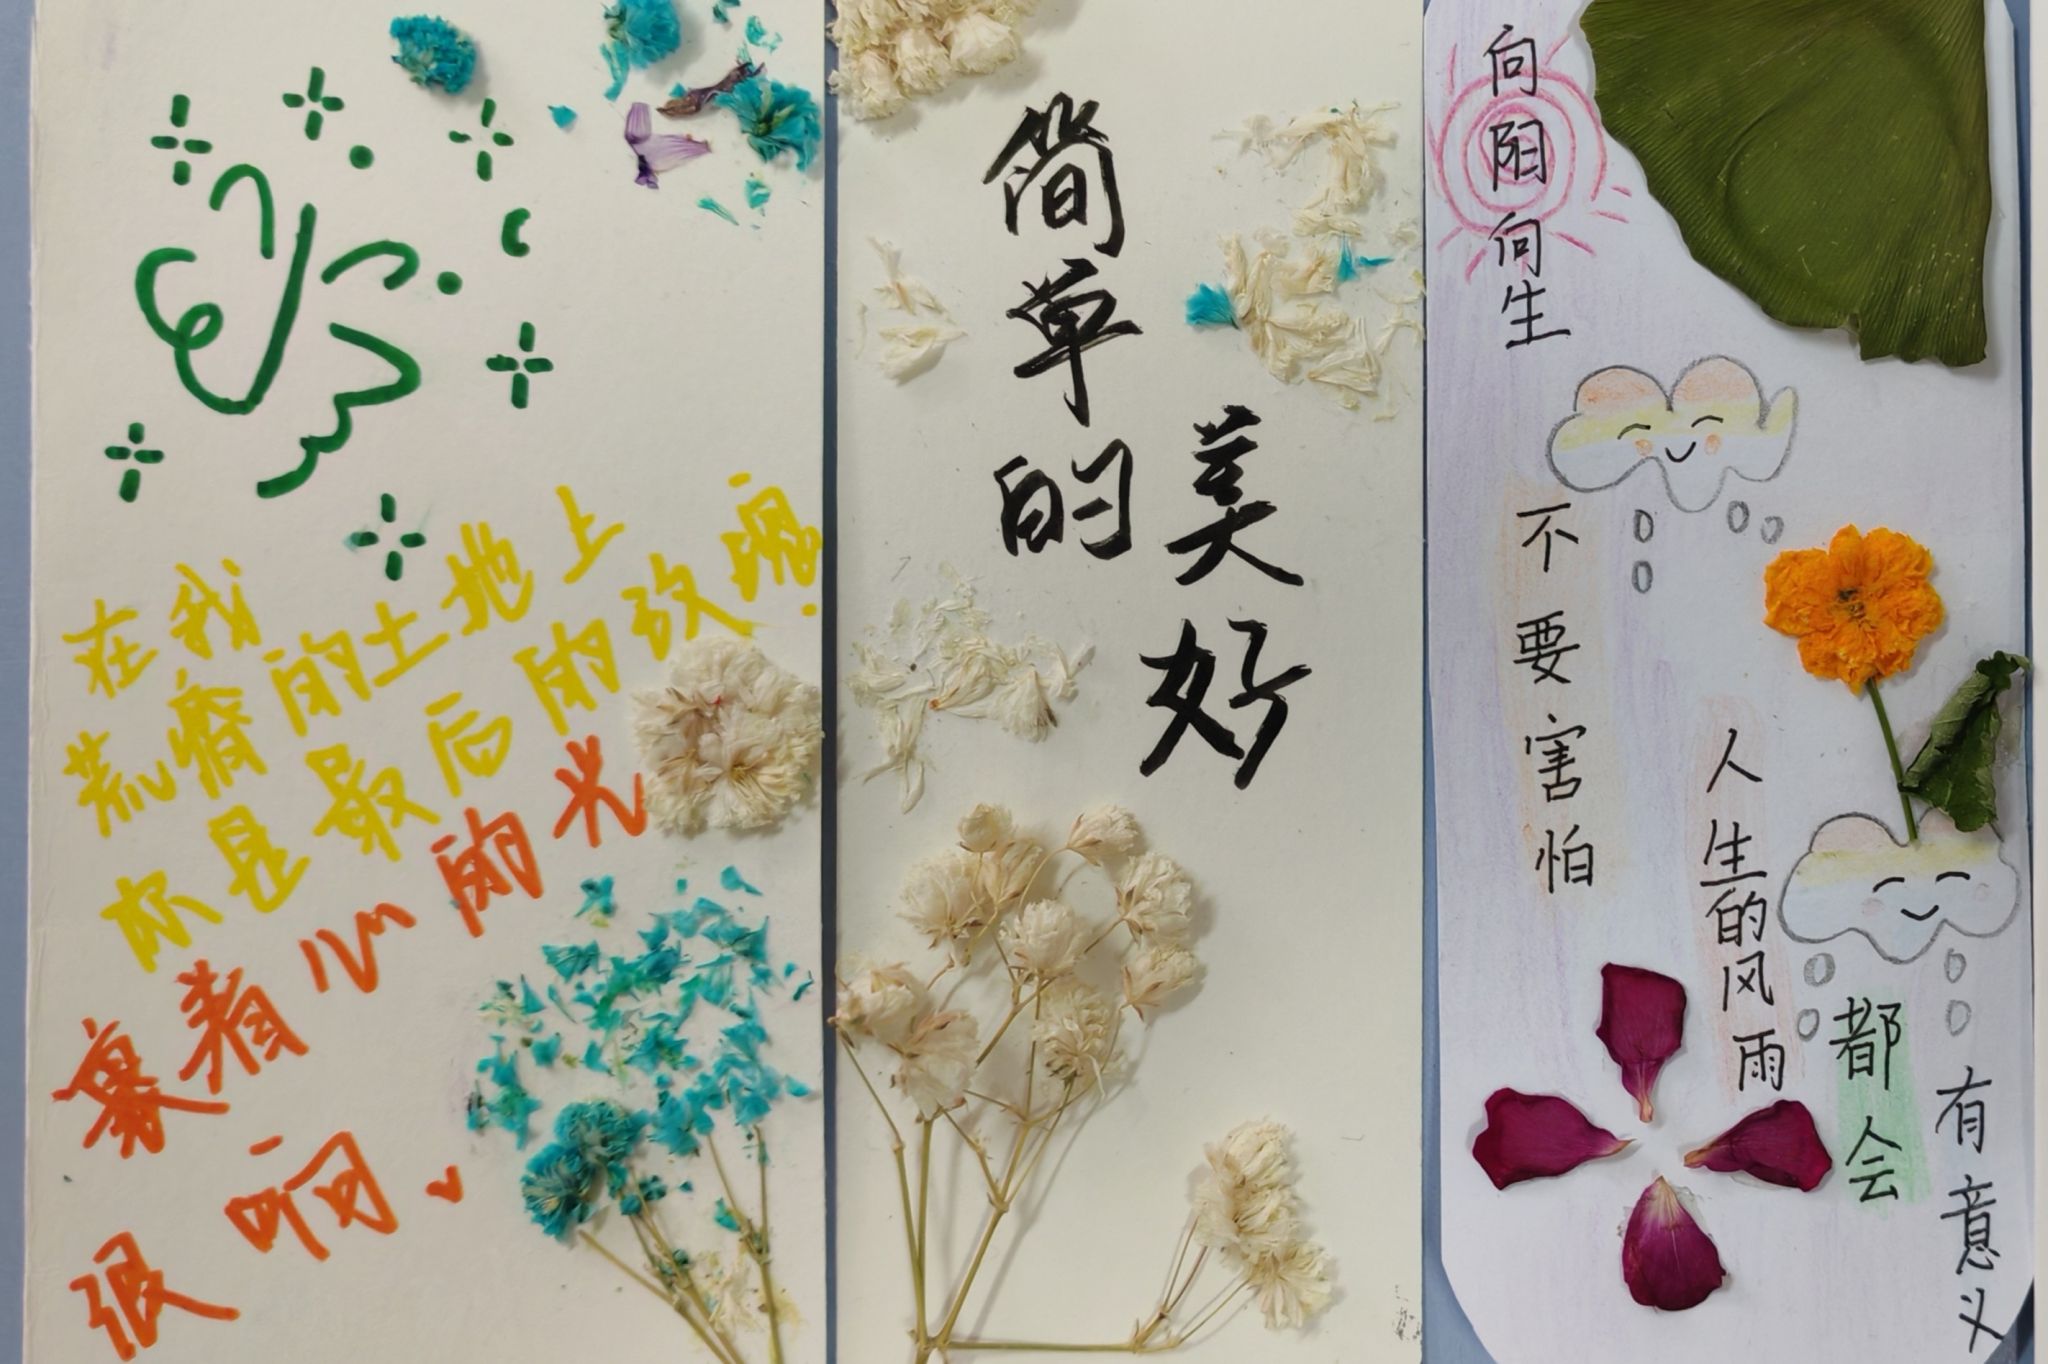 在我
荒瘠的土地上
你是最后的玫瑰.
裹着心的光
很响、
简单的
美好
向阳向生
不要害怕
人生的风雨
都会
有意义